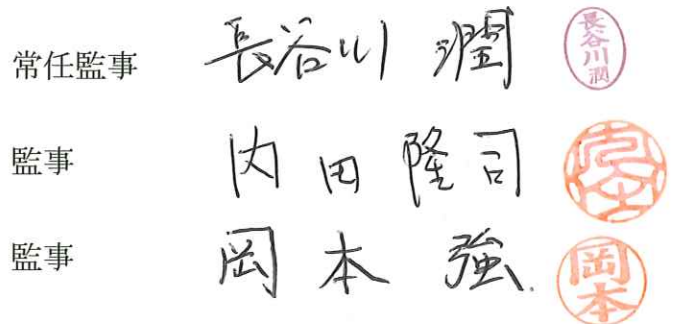 常任監事 長谷川 潤 長谷川潤
監事 内田隆司
監事 岡本 強 岡本